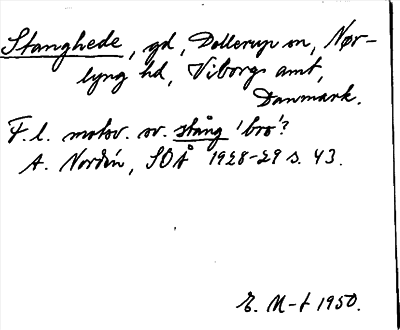 Stanghede, gd, Dollerup sn, Nør-
lyng hd, Viborgs amt,
Danmark.
F.l. motsv. sv. stång 'bro'?
A. Nordén, SOÅ 1928-29 s. 43.
E. M-t 1950.